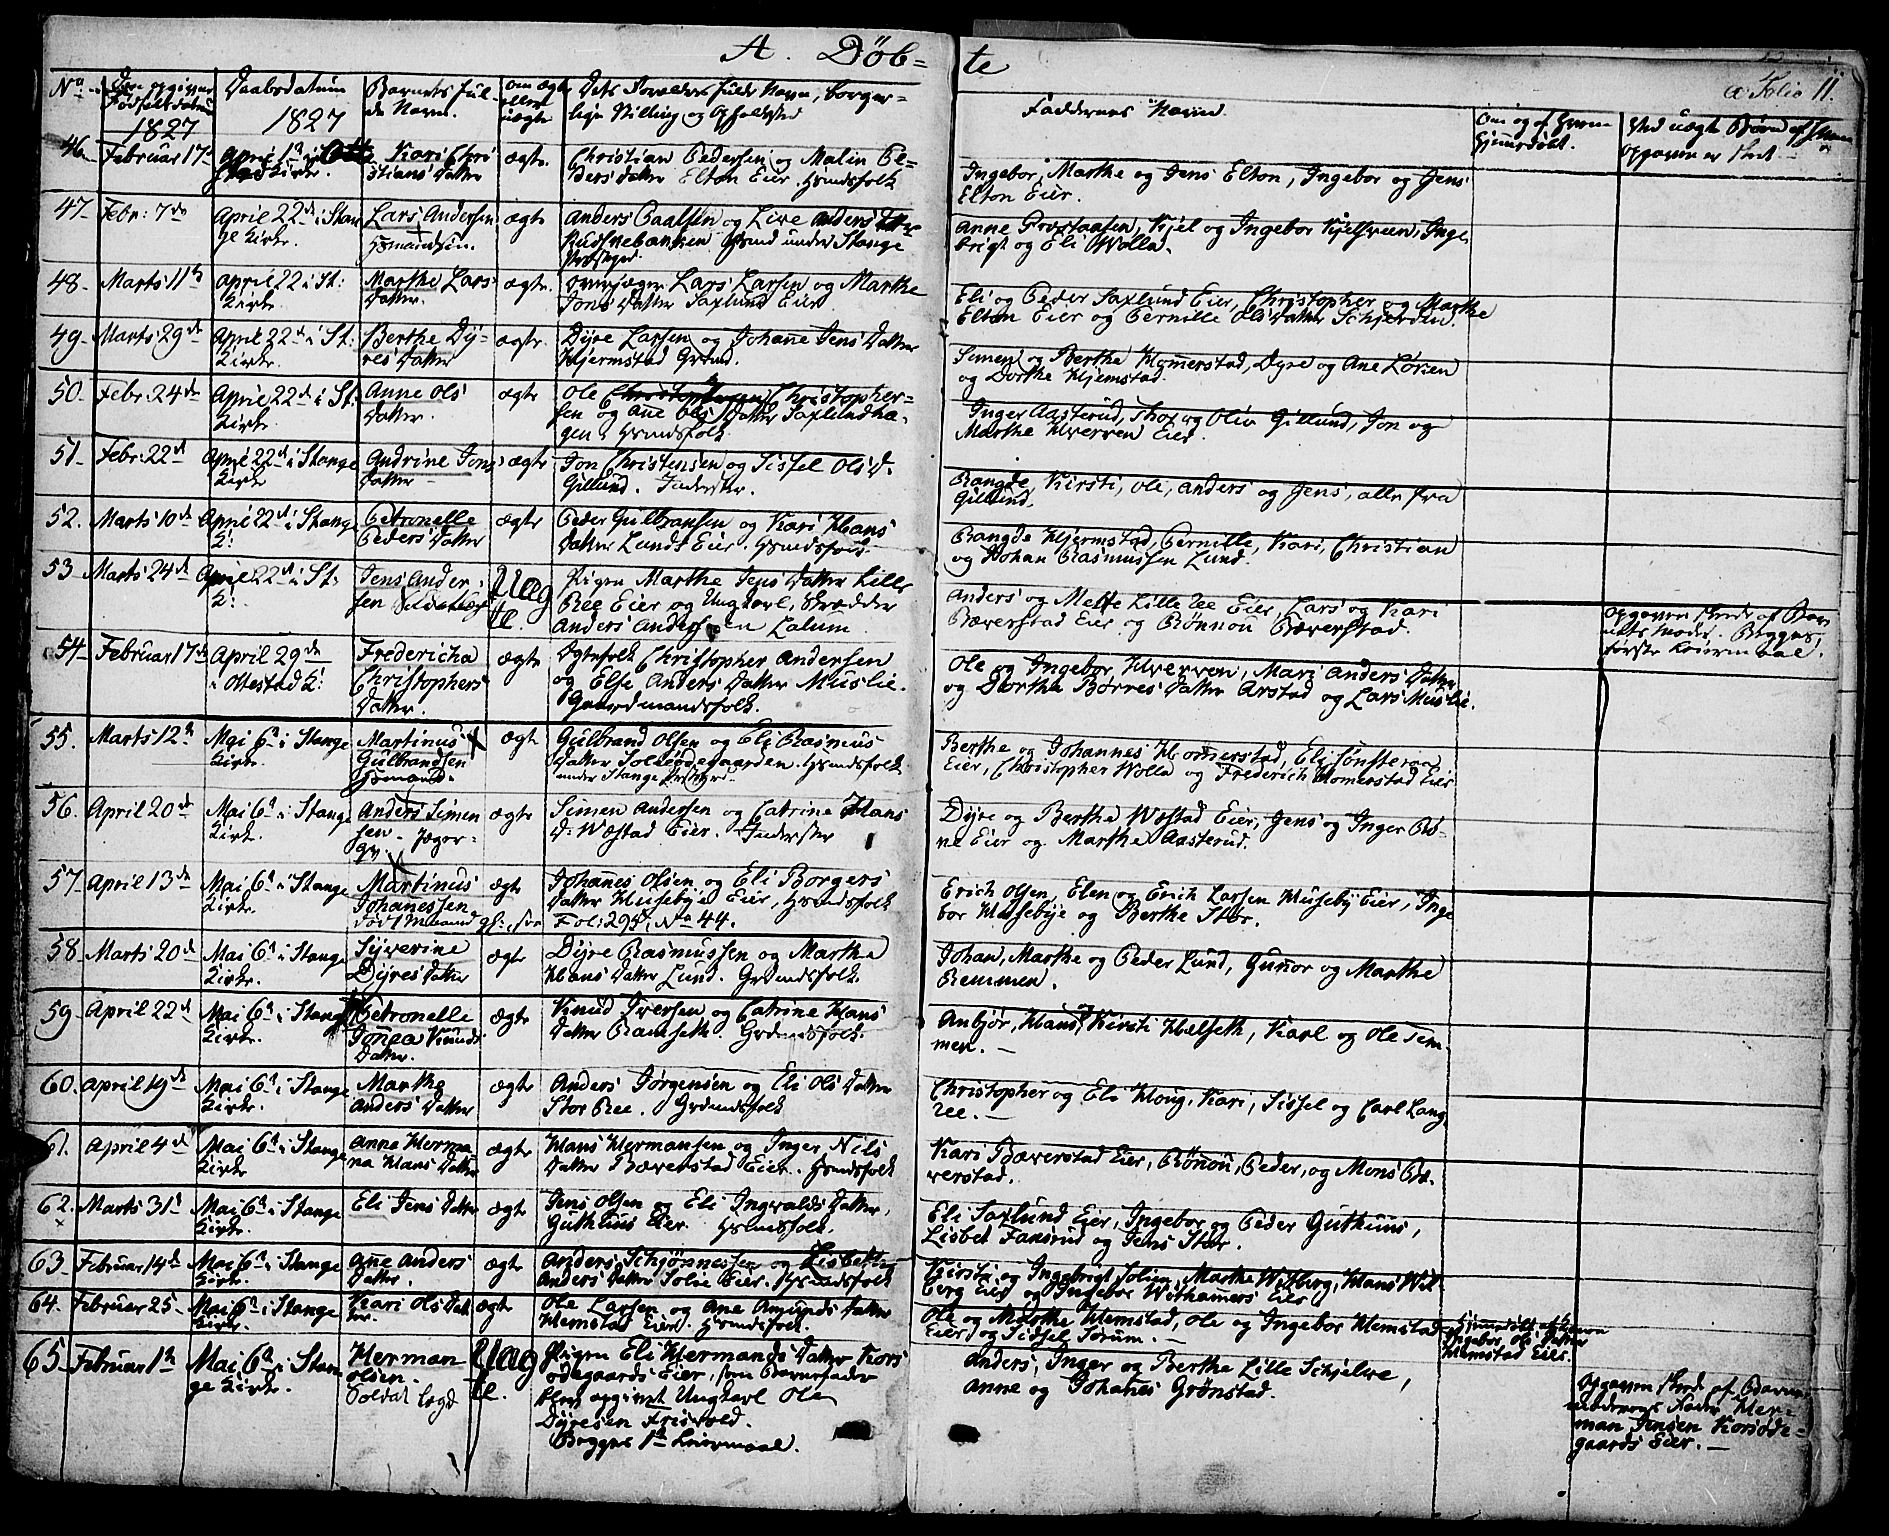 A. Döb=
te
a Folio 11.
No
Den opgivne
Födselsdatum
1827
Daabsdatum
1827
Barnets ful-
de Navn.
om ægte
eller
uægte
Dets Forældres fulde Navn, borger-
lige Stilling og Opholdsted
Faddernes Navne.
Om og af hvem
hjemmedöbt.
46. Februar 17 April 1 Kirke. Kari Chri
stians Datter ægte.
Christian Pedersen og Malin Pe-
ders Datter Elton Eier. Hsmdsfolk
Ingebor, Marthe og Jens Elton, Ingebor og Jens
Elton Eier.
47. Febr: 7de April 22d i Stan
ge Kirke.
Lars Andersen
Hsmandssön.
ægte
Anders Paalsen og Live Anders
under Stange
Anne Kjel og Ingebor Inge
brigt og Eli Wolla.
48. Marts 11h April 22 i St:
Kirke.
Marthe Lars
Datter.
ægte.
Lars Larsen og Marthe
Jons Datter Saxlund Eier
Eli og Peder Saxlund Eier, Christopher og Marthe
Elton Eier og Pernille Ols Datter Schjerden.
49. Marts 29de April 22d i St:
Kirke.
Berthe Dy-
res Datter
ægte.
Dyre Larsen og Johanne Jens Datter
Hjermstad Grund.
Simen og Berthe Dyre og Ane
og Dorthe Hjemstad.
50. Febr. 24de April 22d i St:
Kirke.
Anne Ols
Datter.
ægte
Ole Christopher-
sen og Ane Ols Datter Saxlundha-
gen. Hsmdsfolk.
Inger Aasterud, Thor og Oliv Gillund, Jon og
Marthe Hverven Eier.
51. Febr: 22d April 22d i Stange
Kirke
Andrine Jons
Datter
ægte
Jon Christensen og Sissel Ols D.
Gillund. Inderster.
Bangde, Kirsti, Ole, Anders og Jens, alle fra
Gillund.
52. Marts 10de April 22d i Stange
K:
Petronelle
Peders Datter
ægte
Peder Gulbransen og Kari Hans
Datter Lunds Eier. Hsmdsfolk.
Bangde Hjermstad, Pernille, Kari, Christian
og Johan Rasmussen Lund.
53 Marts 24de April 22d i St:
K:
Jens Ander-
sen
Uæg
te.
Pigen Marthe Jens Datter Lille
Ree Eier og Ungkarl, Skrædder
Anders Anderssen Lalum
Anders og Mette Lille Ree Eier, Lars og Kari
Bæverstad Eier og Rönnou Bæverstad.
Opgaven skede af Bar
nets Moder. Begges
förste Leiermaal.
54. Februar 17de April 29de
i Ottestad K:
Fredericha
Christophers
Datter.
ægte
Ægtefolk Christopher Andersen
og Else Anders Datter Muslie.
Gaardmandsfolk.
Ole og Ingebor Hverven, Mari Anders Datter
og Dorthe Börres Datter Arstad og Lars Muslie.
55. Marts 12h Mai 6h i Stange
Kirke.
Martinus
Gulbrandsen
Hsmand.
ægte
Gulbrand Olsen og Eli Rasmus
Datter Hsmdsfolk.
under Stange Præstegd.
Berthe og Johannes Homerstad, Eli
Eier, Christopher Wolla og Frederich Homerstad Eier
56. April 20de Mai 6h i Stange
Kirke.
Anders Simen
sen.
ægte
Simen Andersen og Catrine Hans
D: Wæstad Eier. Inderster
Dyre og Berthe Wæstad Eier, Jens og Inger Rö-
ne Eier og Marthe Aasterud.
57. April 13de Mai 6h i Stange
Kirke.
Martinus
Johanessen
ægte
Johanes Olsen og Eli Borgers
Datter Husebye Eier, Hsmdsfolk
Fol: 295, No 44.
Erich Olsen, Elen og Erich Larsen Huseby Eier, Inge
bor Husebye og Berthe Stor.
58. Marts 20de Mai 6h i Stange
Kirke.
Syverine
Dyres Datter
ægte
Dyre Rasmussen og Marthe
Hans Datter Lund. Grdmdsfolk.
Johan, Marthe og Peder Lund, Gunor og Marthe
Remmen.
59. April 22d Mai 6h i Stange
Kirke.
Petronelle
Jonea Knuds
Datter.
ægte
Knud Iversen og Catrine Hans
Datter Ramseth. Grdmdsfolk.
Anbjör, Hans, Kirsti Helseth, Karl og Ole Rem-
men.—
60. April 19de Mai 6h i Stange
Kirke.
Marthe
Anders Datter
ægte
Anders Jörgensen og Eli Ols Datter
Stor Ree. Grdmdsfolk
Christopher og Eli Houg, Kari, Sissel og Carl Lang
ree.—
61. April 4de Mai 6h i Stange
Kirke
Anna Herma
na Hans Datter
ægte
Hans Hermansen og Inger Nils
Datter Bæverstad Eier. Hsmdsfolk
Kari Bæverstad Eier, Rönou, Peder, og Mons Bæ-
verstad.
62. Marts 31d Mai 6h i Stange
Kirke.
Eli Jens Datter
ægte
Jens Olsen og Eli Ingvalds Datter,
Guthuus Eier. Hsmdsfolk.
Eli Saxlund Eier, Ingebor og Peder Guthuus,
Lisbet Fansrud og Jens Stor.
63. Februar 14de Mai 6h i Stange
Kirke.
Ane Anders
Datter.
ægte
Anders Schjönnessen og Lisbeth
Anders Datter Solie Eier. Hsmdsfolk
Kirsti og Ingebrigt Solien, Marthe Witberg, Hans Wit
berg Eier og Ingebor Withamers Eier
64. Februar 25 Mai 6h i Stange
Kirke.
Kari Ols Dat
ter.
ægte
Ole Larsen og Ane Amunds Datter
Hemstad Eier. Hsmdsfolk.
Ole og Marthe Hemstad, Ole og Ingebor Hemstad
Eier og Sissel Sorum.—
Hjemmedöbt af
Ingebor Ols Datter
Hemstad Eier.
65. Februar 1h Mai 6h i Stan
ge Kirke.
Herman
Olsen.
Soldat
Uæg
te.
Pigen Eli Hermands Datter Kors
ödegaards Eier, som Barnefader
blev opgivet Ungkarl Ole
Dyresen Frisvold.
Begges 1h Leiermaal.
Anders, Inger og Berthe Lille Schjelve,
Anne og Johanes Grönstad.
Opgaven skede af Barne
moderens Fader Her-
man Jensen Korsöde-
gaards Eier.—